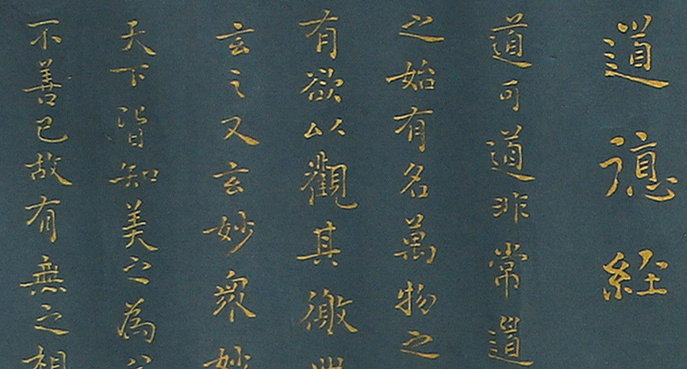 道德经
道可道非常道
之始有名萬物之
有欲以觀其徼
玄之又玄妙衆妙
天下皆知美之為
不善已故有無之相